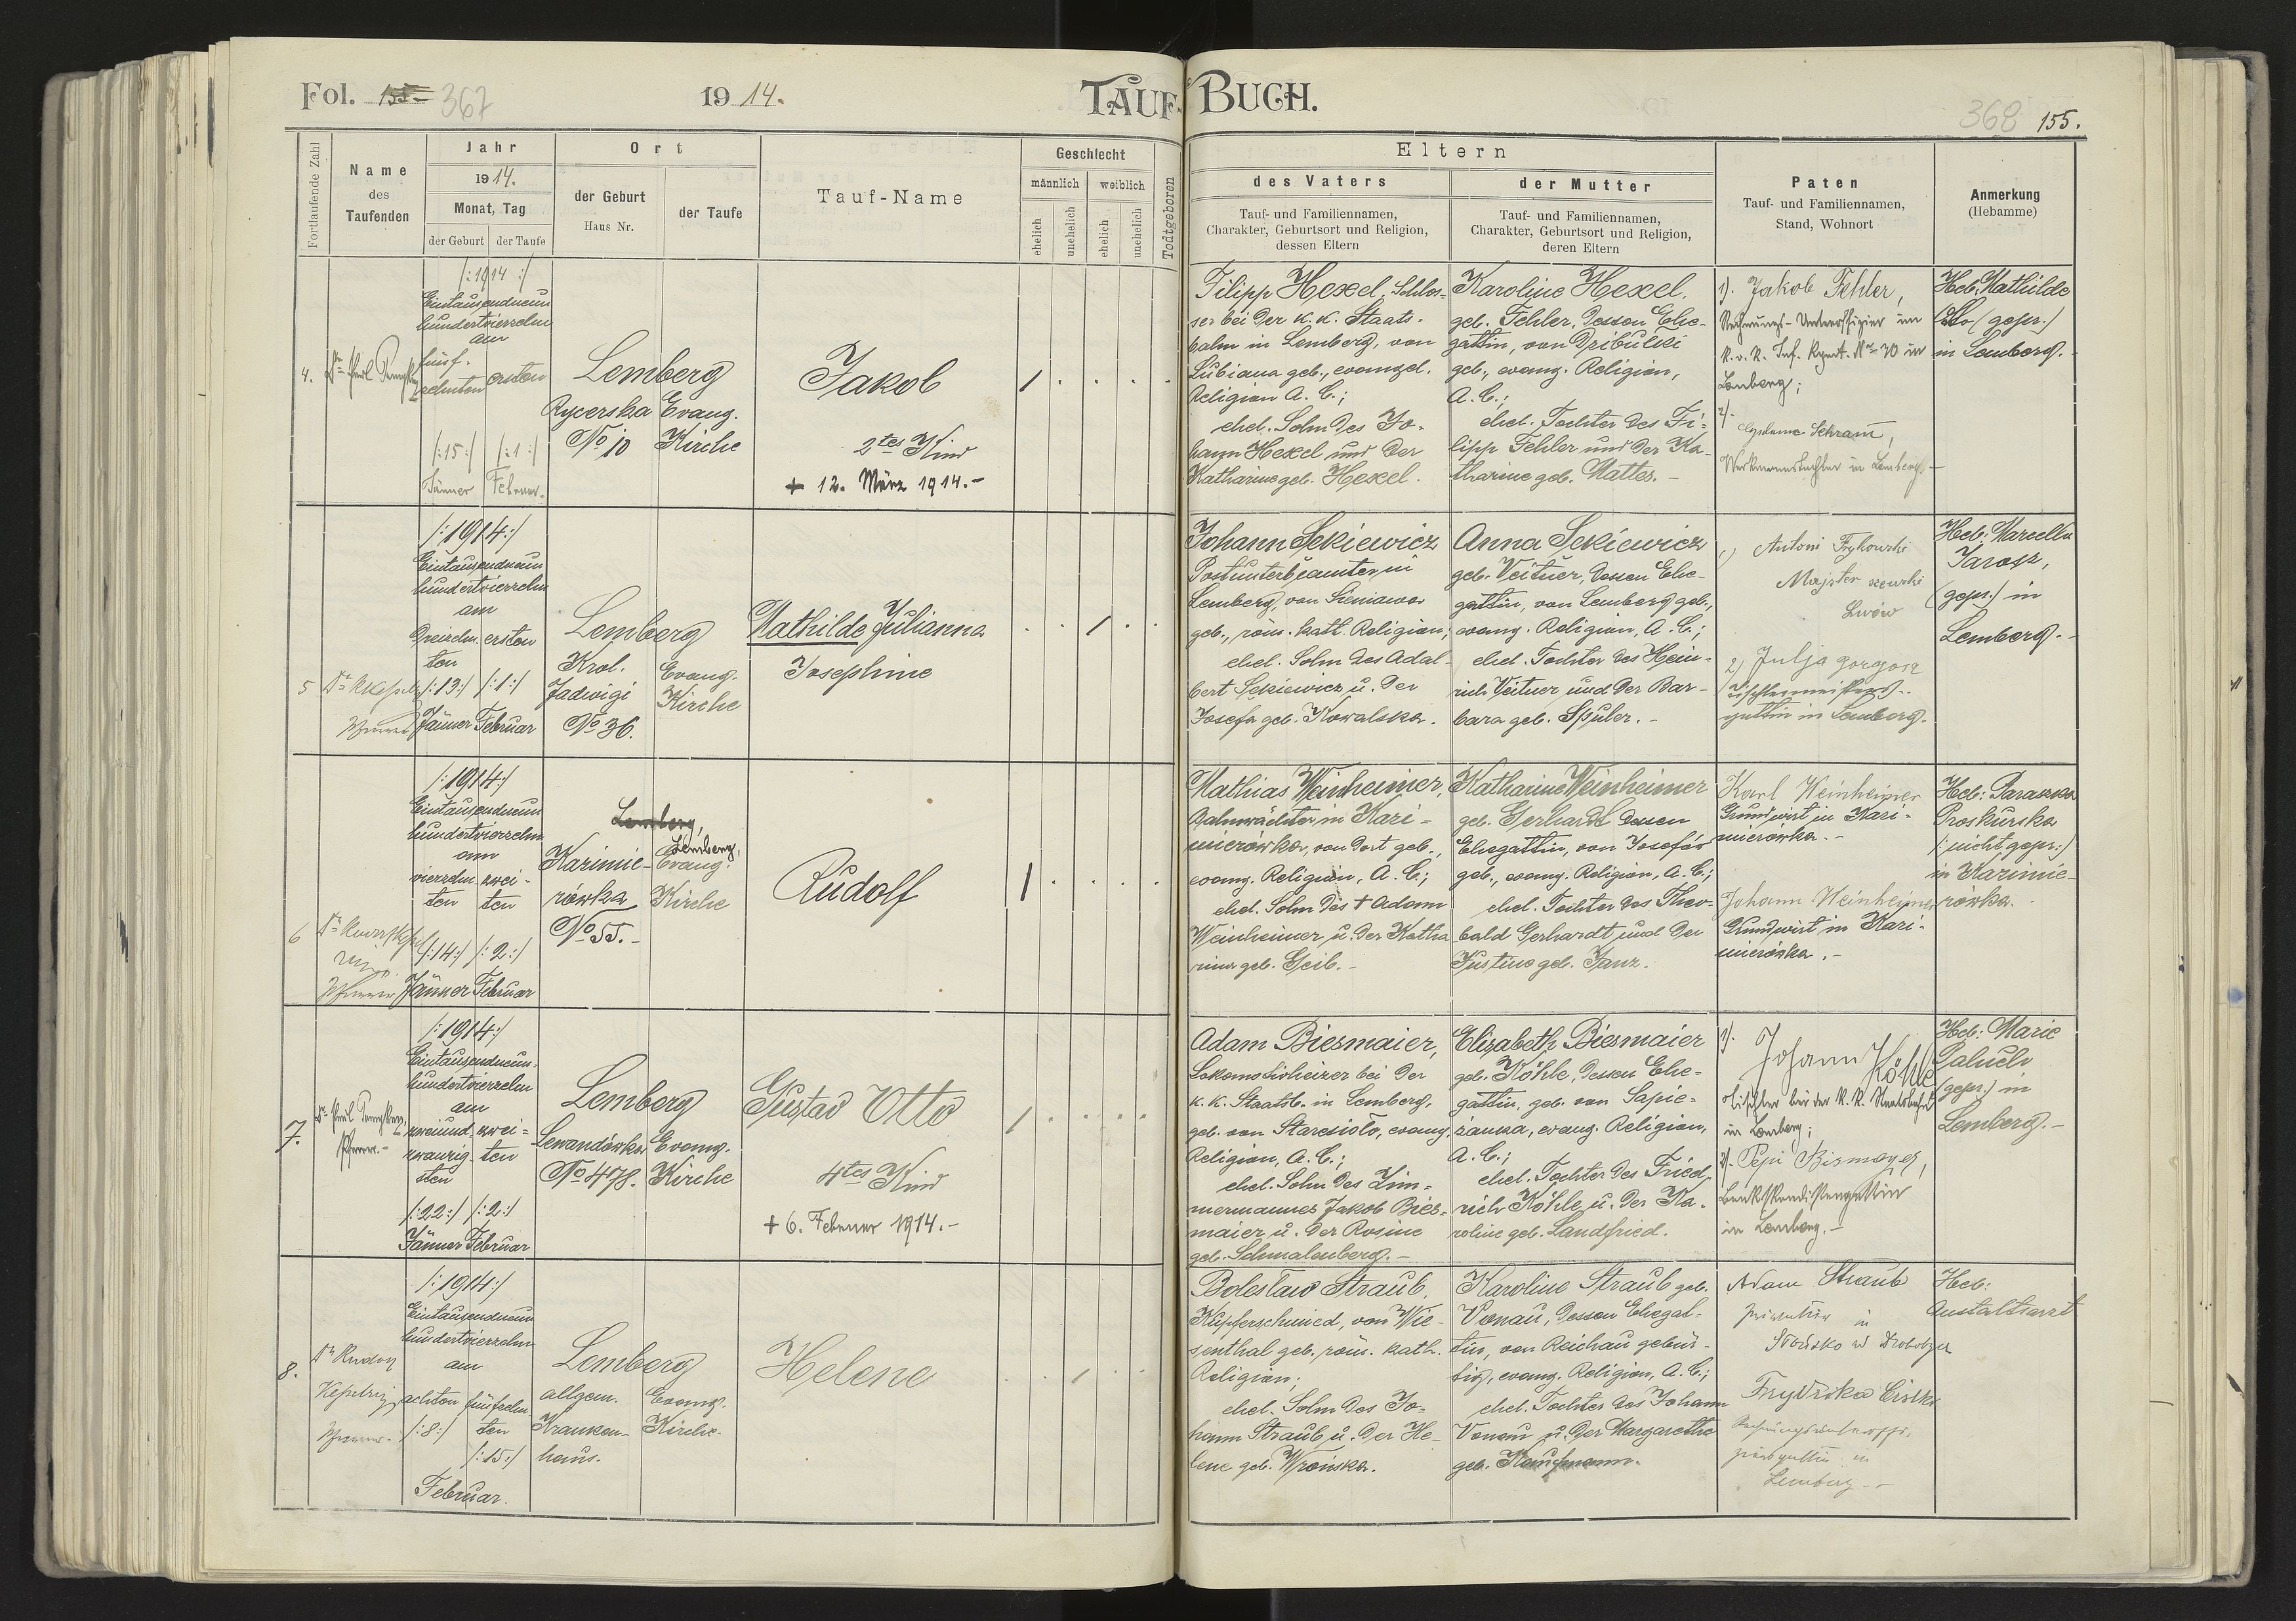 Fol. 155 367
1914.
TAUF-BUCH.
368 155.
Fortlaufende Zahl
Name
des
Taufenden
Jahr
1914.
Monat, Tag
der Geburt
der Taufe
Ort
der Geburt
Haus Nr.
der Taufe
Tauf-Name
Geschlecht
männlich
weiblich
ehelich
unehelich
ehelich
unehelich
Todtgeboren
Eltern
des Vaters
Tauf- und Familiennamen,
Charakter, Geburtsort und Religion,
dessen Eltern
der Mutter
Tauf- und Familiennamen,
Charakter, Geburtsort und Religion,
deren Eltern
Paten
Tauf- und Familiennamen,
Stand, Wohnort
Anmerkung
(Hebamme)
4.
/:1914:/
Eintausendneun
hundertvierzehn
am
fünf-
zehnten
ersten
/:15:/ /:1:/
Jänner Februar.
Lemberg
Rycerska
No 10
Evang.
Kirche
Jakob
2tes Kind
+ 12. März 1914.-
Filipp Hexel, Schlos-
ser bei der k. k. Staats-
bahn in Lemberg, von
Lubiana geb., evangel.
Religion A. C.;
ehel. Sohn des Jo-
hann Hexel und der
Katharine geb. Hexel.
Karoline Hexel,
geb. Fehler, dessen Ehe-
gattin, von Dzibulki
geb., evang. Religion,
A. C.;
ehel. Tochter des Fi-
lipp Fehler und der Ka-
tharine geb. Mattes.-
1). Jakob Fehler,
Rechnungs-Unteroffizier im
k. u. k. Inf. Regmt. No 30 in
Lemberg;
2).
Schram,
in Lemberg.-
Heb. Mathilde
(gepr.)
in Lemberg.-
5
/:1914:/
Eintausendneun
hundertvierzehn
am
Dreizehn-
ten
ersten
/:13:/ /:1:/
Jänner Februar
Lemberg
Krol.
Jadwigi
No 36.
Evang.
Kirche
Mathilde Julianna
Josephine
Johann Sekiewicz
Postunterbeamter in
Lemberg, von Sieniawa
geb., röm. kath. Religion;
ehel. Sohn des Adal-
bert Sekiewicz u. der
Josefa geb. Kowalska.
Anna Sekiewicz
geb. Veitner, dessen Ehe-
gattin, von Lemberg geb.,
evang. Religion, A. C.;
ehel. Tochter des Hein-
rich Veitner und der Bar-
bara geb. Spuler.-
1) Antoni
Majster szewski
Lwów
2) Julja Gorgosz
Tischlermeisters-
gattin in Lemberg.
Heb: Marcella
Jarosz,
(gepr.) in
Lemberg.-
6
/:1914:/
Eintausendneun
hundertvierzehn
am
vierzehn-
ten
zwei-
ten
/:14:/ /:2:/
Jänner Februar
Lemberg,
Kazimie-
rówka
No 55.-
Lemberg,
Evang.
Kirche
Rudolf
Mathias Weinheimer,
Bahnwächter in Kazi-
mierówka, von dort geb.,
evang. Religion, A. C.;
ehel. Sohn des + Adam
Weinheimer u. der Katha
rina geb. Geib.-
Katharine Weinheimer
geb. Gerhardt dessen
Ehegattin, von Josefów
geb., evang. Religion, A. C.;
ehel. Tochter des Theo-
bald Gerhardt und der
Justine geb. Janz.
Karl Weinheimer
Grundwirt in Kazi-
mierówka.-
Johann Weinheimer
Grundwirt in Kazi-
mierówka.-
Heb: Paraszka
Proskurska
/:nicht gepr.:/
in Kazimie-
rówka.
7.
Pfarrer.-
/:1914:/
Eintausendneun-
hundertvierzehn
am
zweiund-
zwanzig-
sten
zwei-
ten
/:22:/ /:2:/
Jänner Februar
Lemberg
Lewandówka
No 478.
Evang.
Kirche
Gustav Otto
4tes Kind
+ 6. Februar 1914.-
Adam Biesmaier,
Lokomotivheizer bei der
k. k. Staatsb. in Lemberg,
geb. von Staresioło, evang.
Religion, A. C.;
ehel. Sohn des Zim-
mermannes Jakob Bies-
maier u. der Rosine
geb. Schmalenberg.-
Elisabeth Biesmaier
geb. Köhle, dessen Ehe-
gattin, geb. von Sapie-
zanka, evang. Religion,
A. C.;
ehel. Tochter des Fried-
rich Köhle u. der Ka-
roline geb. Landfried.
1). Johann Köhle
Tischler bei der k. k. Staatsbahn
in Lemberg;
2). Pepi Bismayer,
in Lemberg.-
Heb: Marie
(gepr.) in
Lemberg.-
8.
/:1914:/
Eintausendneun
hundertvierzehn
am
achten
/:8:/
fünfzehn
ten
/:15:/
Februar.
Lemberg
allgem.
Kranken-
haus.
Evang.
Kirche.
Helene
Boleslaw Straub,
Kupferschmied, von Wie-
senthal geb. röm. kath.
Religion;
ehel. Sohn des Jo-
hann Straub u. der He-
lene geb. Wrońska.
Karoline Straub geb.
Vonau, dessen Ehegat-
tin, von Reichau gebür-
tig, evang. Religion, A. C.;
ehel. Tochter des Johann
Vonau u. der Margarethe
geb. Kaufmann.
Adam Straub
in
Frydrika
in
Lemberg.-
Heb:
Anstaltsarzt